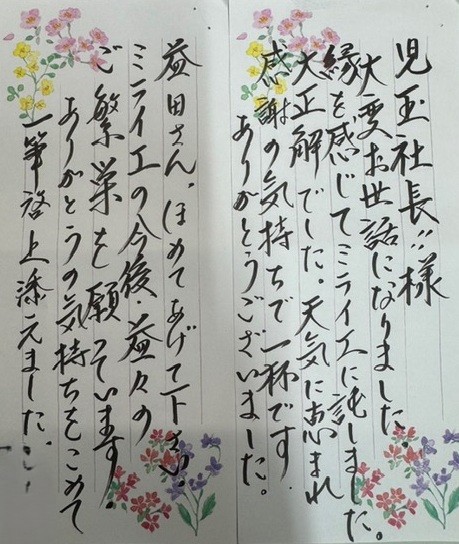 児玉社長!!様
大変お世話になりました
縁を感じてミライエに託しました。
大正解でした。天気に恵まれ
感謝の気持ちで一杯です
ありがとうございました。
益田さん、ほめてあげて下さい。
ミライエの今後益々の
ご繁栄を願っています。
ありがとうの気持ちをこめて
一筆啓上添えました。